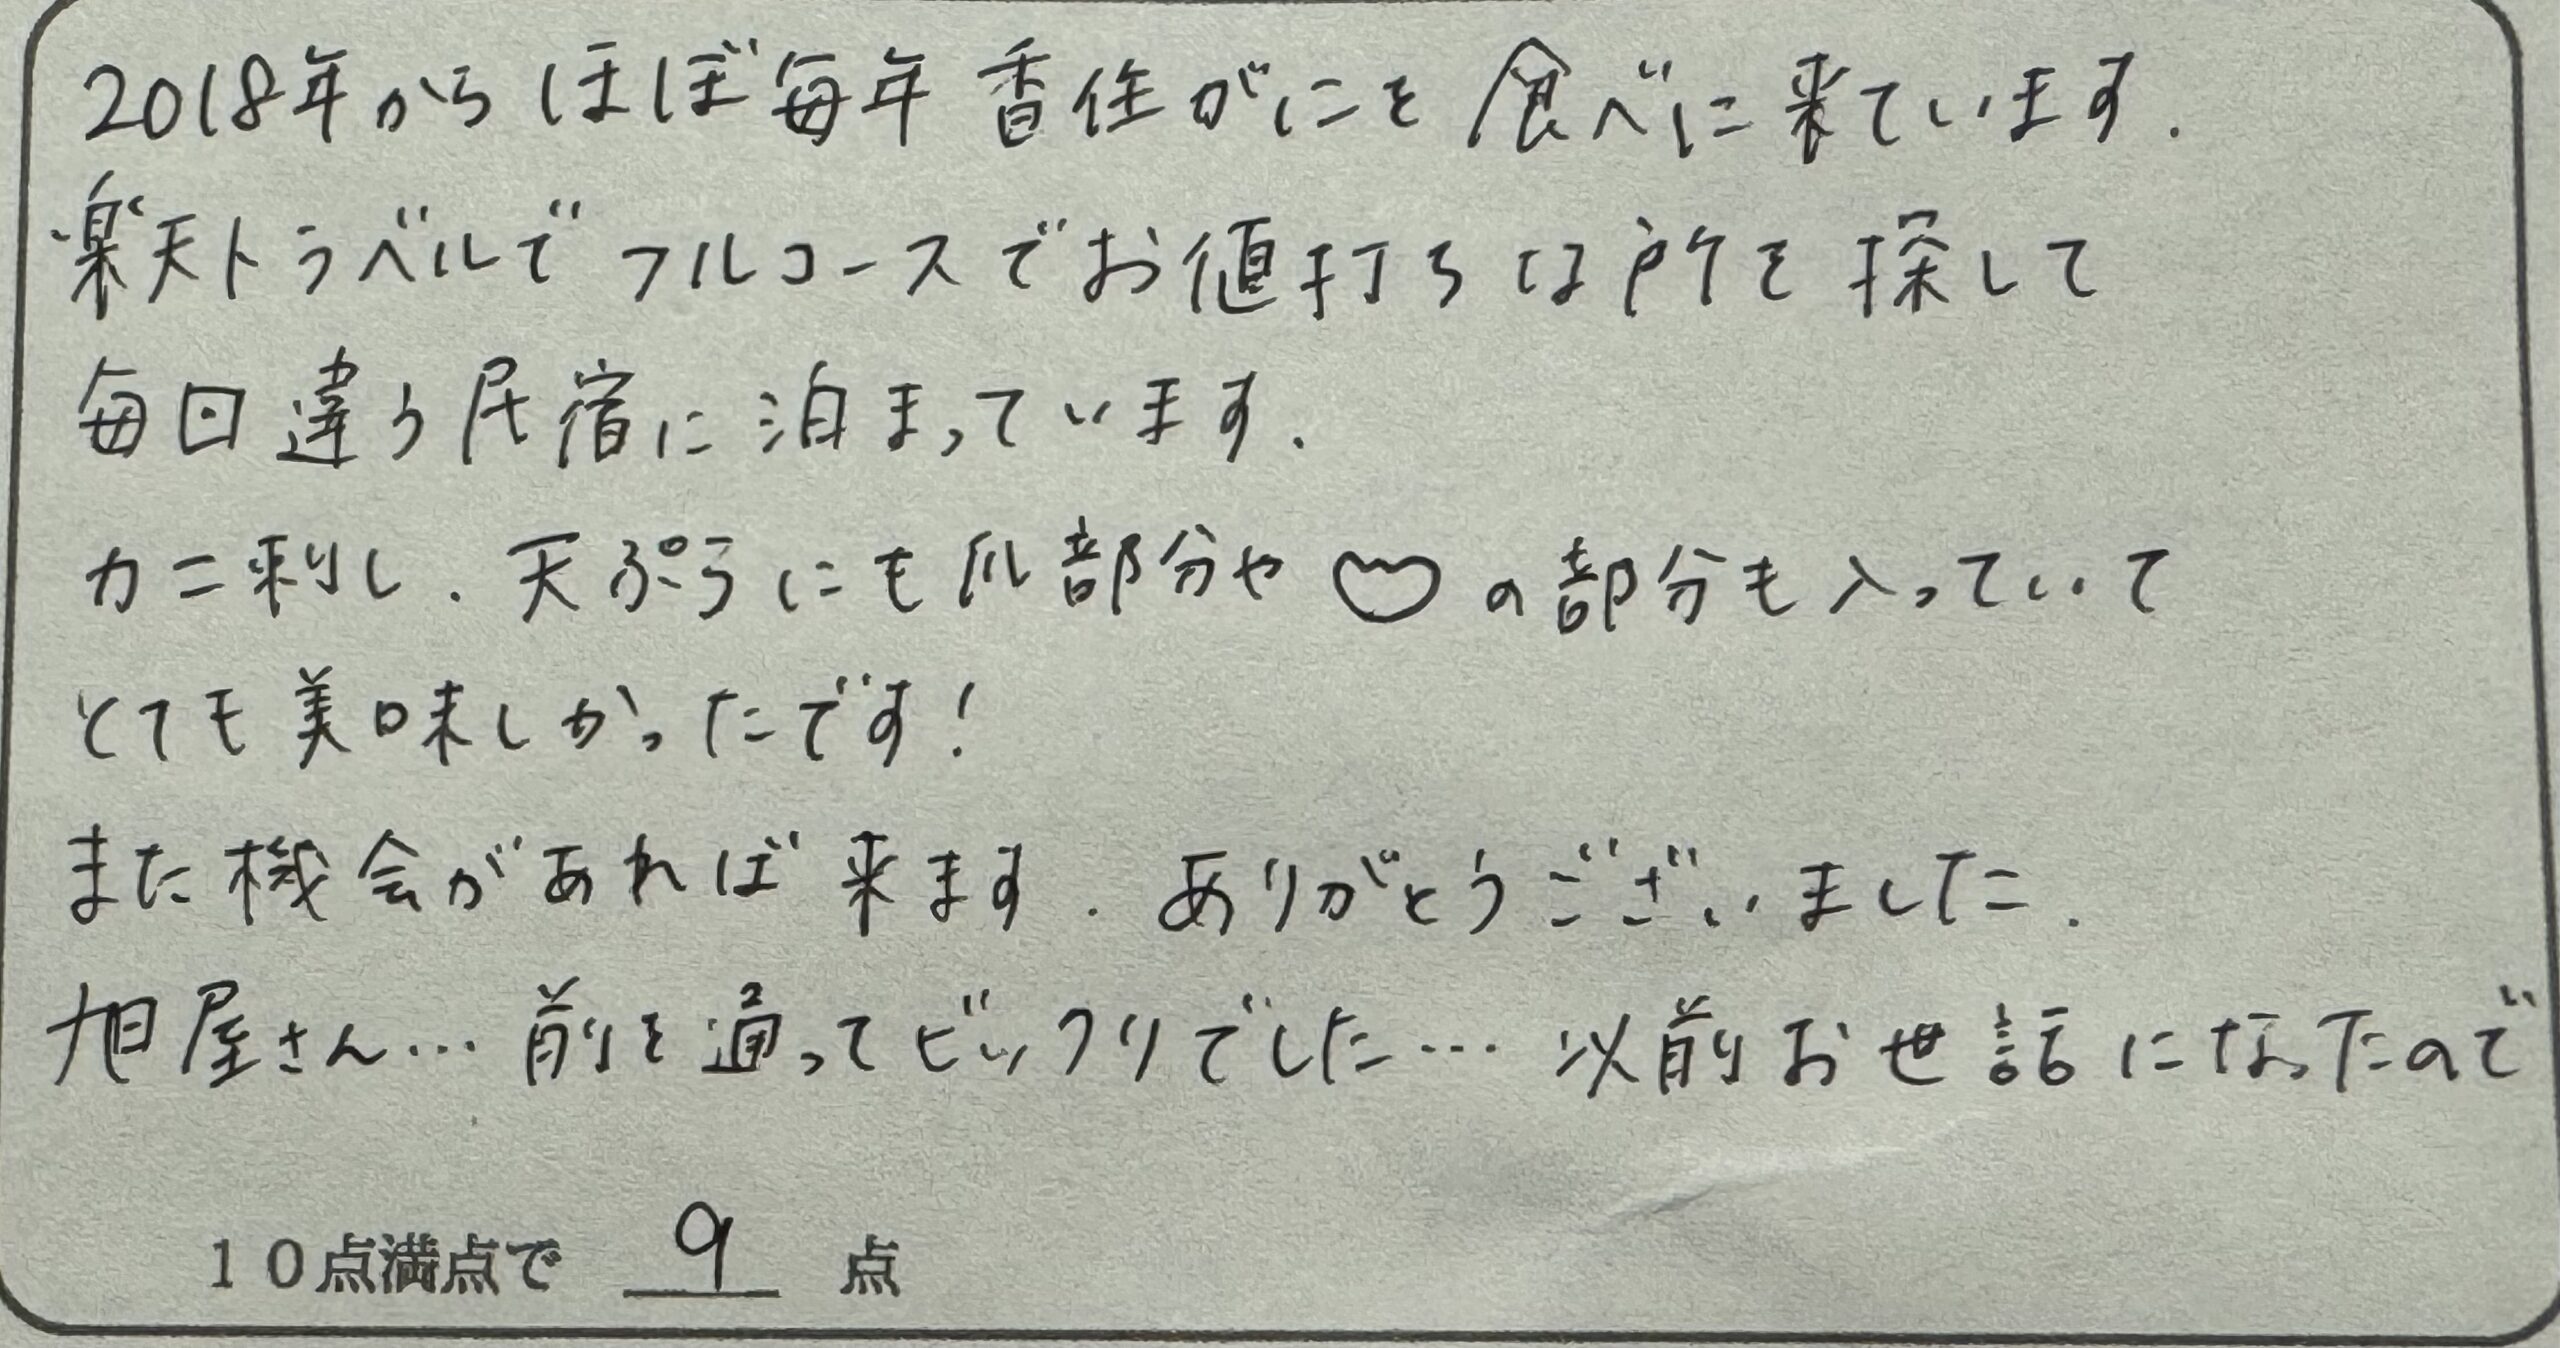 2018年からほぼ毎年香住がにを食べに来ています.
楽天トラベルでフルコースでお値打ちな所を探して
毎回違う民宿に泊まっています.
カニ刺し.天ぷらにも爪部分や の部分も入っていて
とても美味しかったです!
また機会があれば来ます.ありがとうございました.
旭屋さん…前を通ってビックリでした…以前お世話になったので
10点満点で 9 点